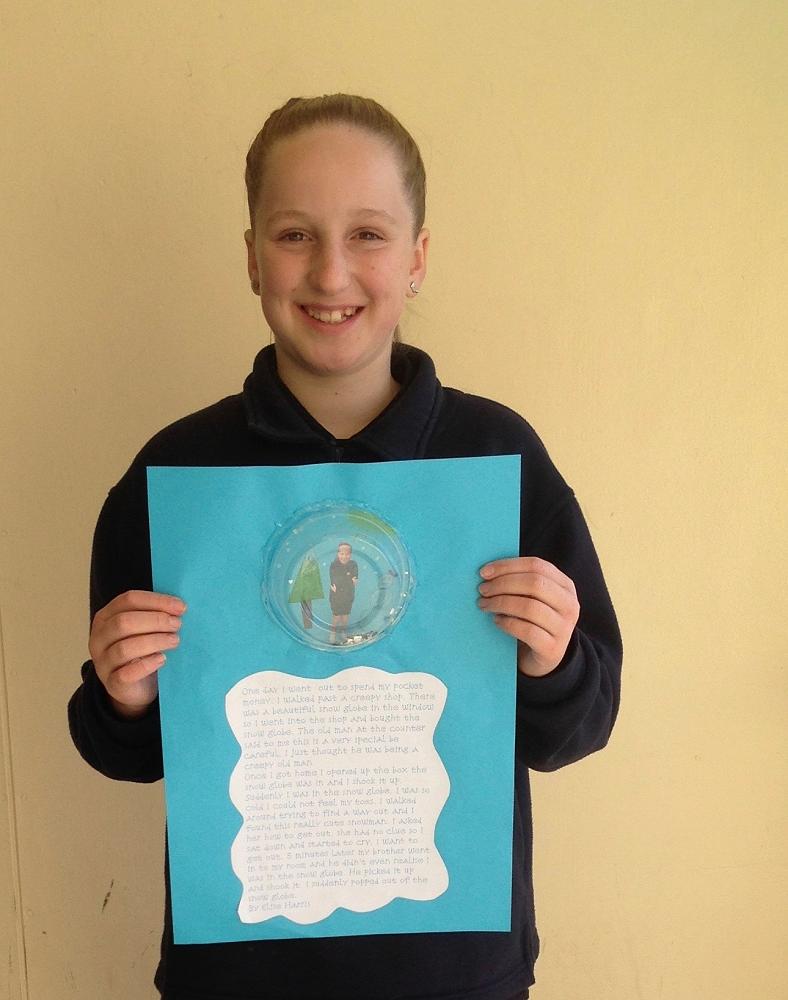 One day I went out to spend my pocket
money. I walked past a creepy shop. There
was a beautiful snow globe in the window
so I went into the shop and bought the
snow globe. The old man at the counter
said to me this is a very special be
careful. I just thought he was being a
creepy old man.
Once I got home I opened up the box the
snow globe was in and I shook it up.
Suddenly I was in the snow globe. I was so
cold I could not feel my toes. I walked
around trying to find a way out and I
found this really cute snowman. I asked
her how to get out, she had no clue so I
sat down and started to cry. I want to
get out. 5 minutes later my brother went
in to my room and he didn't even realise I
was in the snow globe. He picked it up
and shook it. I suddenly popped out of the
snow globe.
By Elise Harris